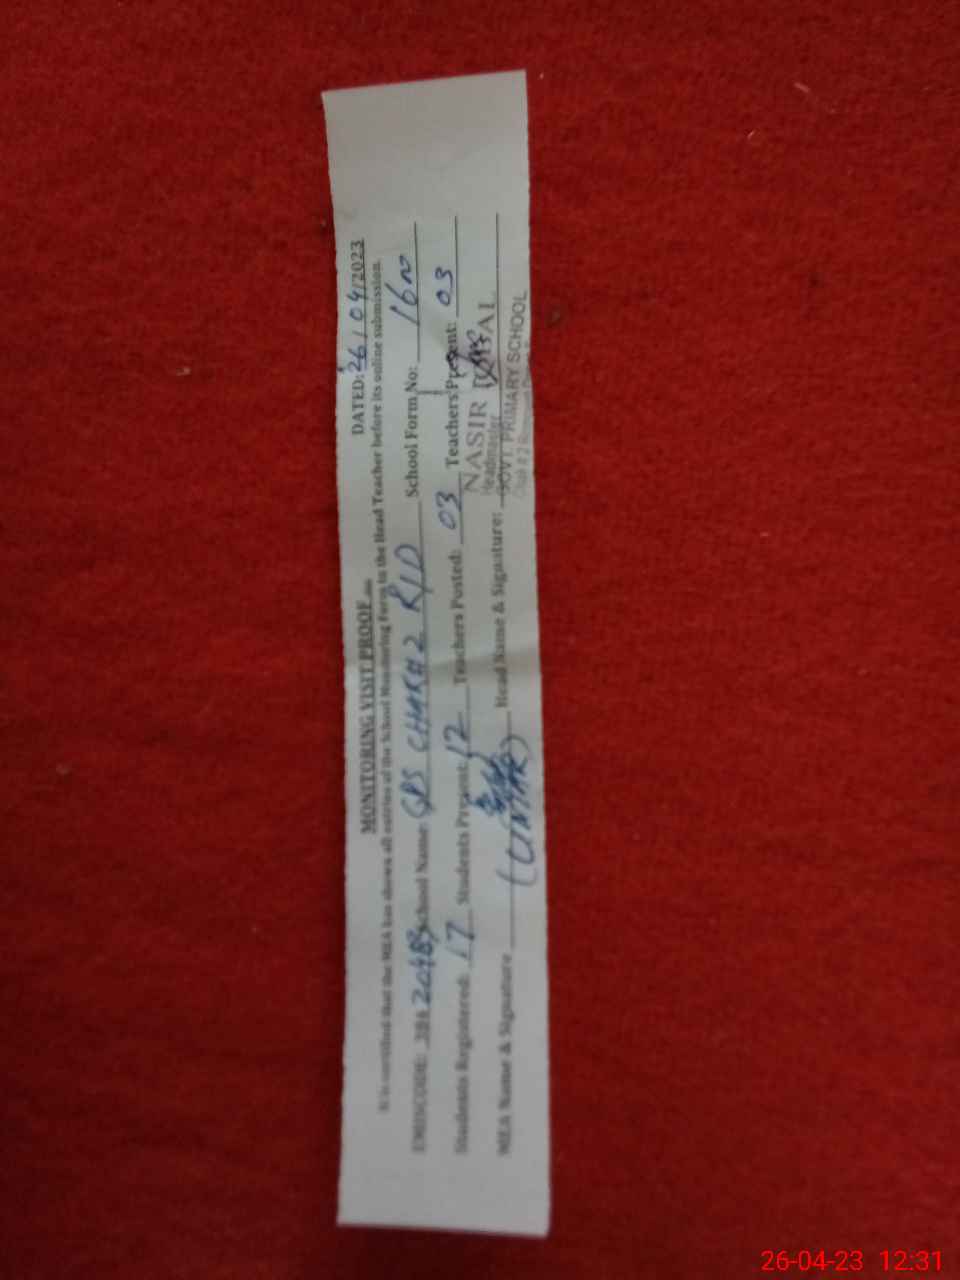 MONITORING VISIT PROOF
DATED: 26/04/2023
It is certified that the MEA has shown all entries of the School Monitoring Form to the Head Teacher before its online submission.
EMISCODE: School Name: GPS CHAK#2 R/D School Form No:
Students Registered: 17 Students Present: 12 Teachers Posted: 03 Teachers Present: 03
MEA Name & Signature (UMAR) Head Name & Signature:
NASIR
Headmaster
GOVT. PRIMARY SCHOOL
Chak # 2
26-04-23 12:31